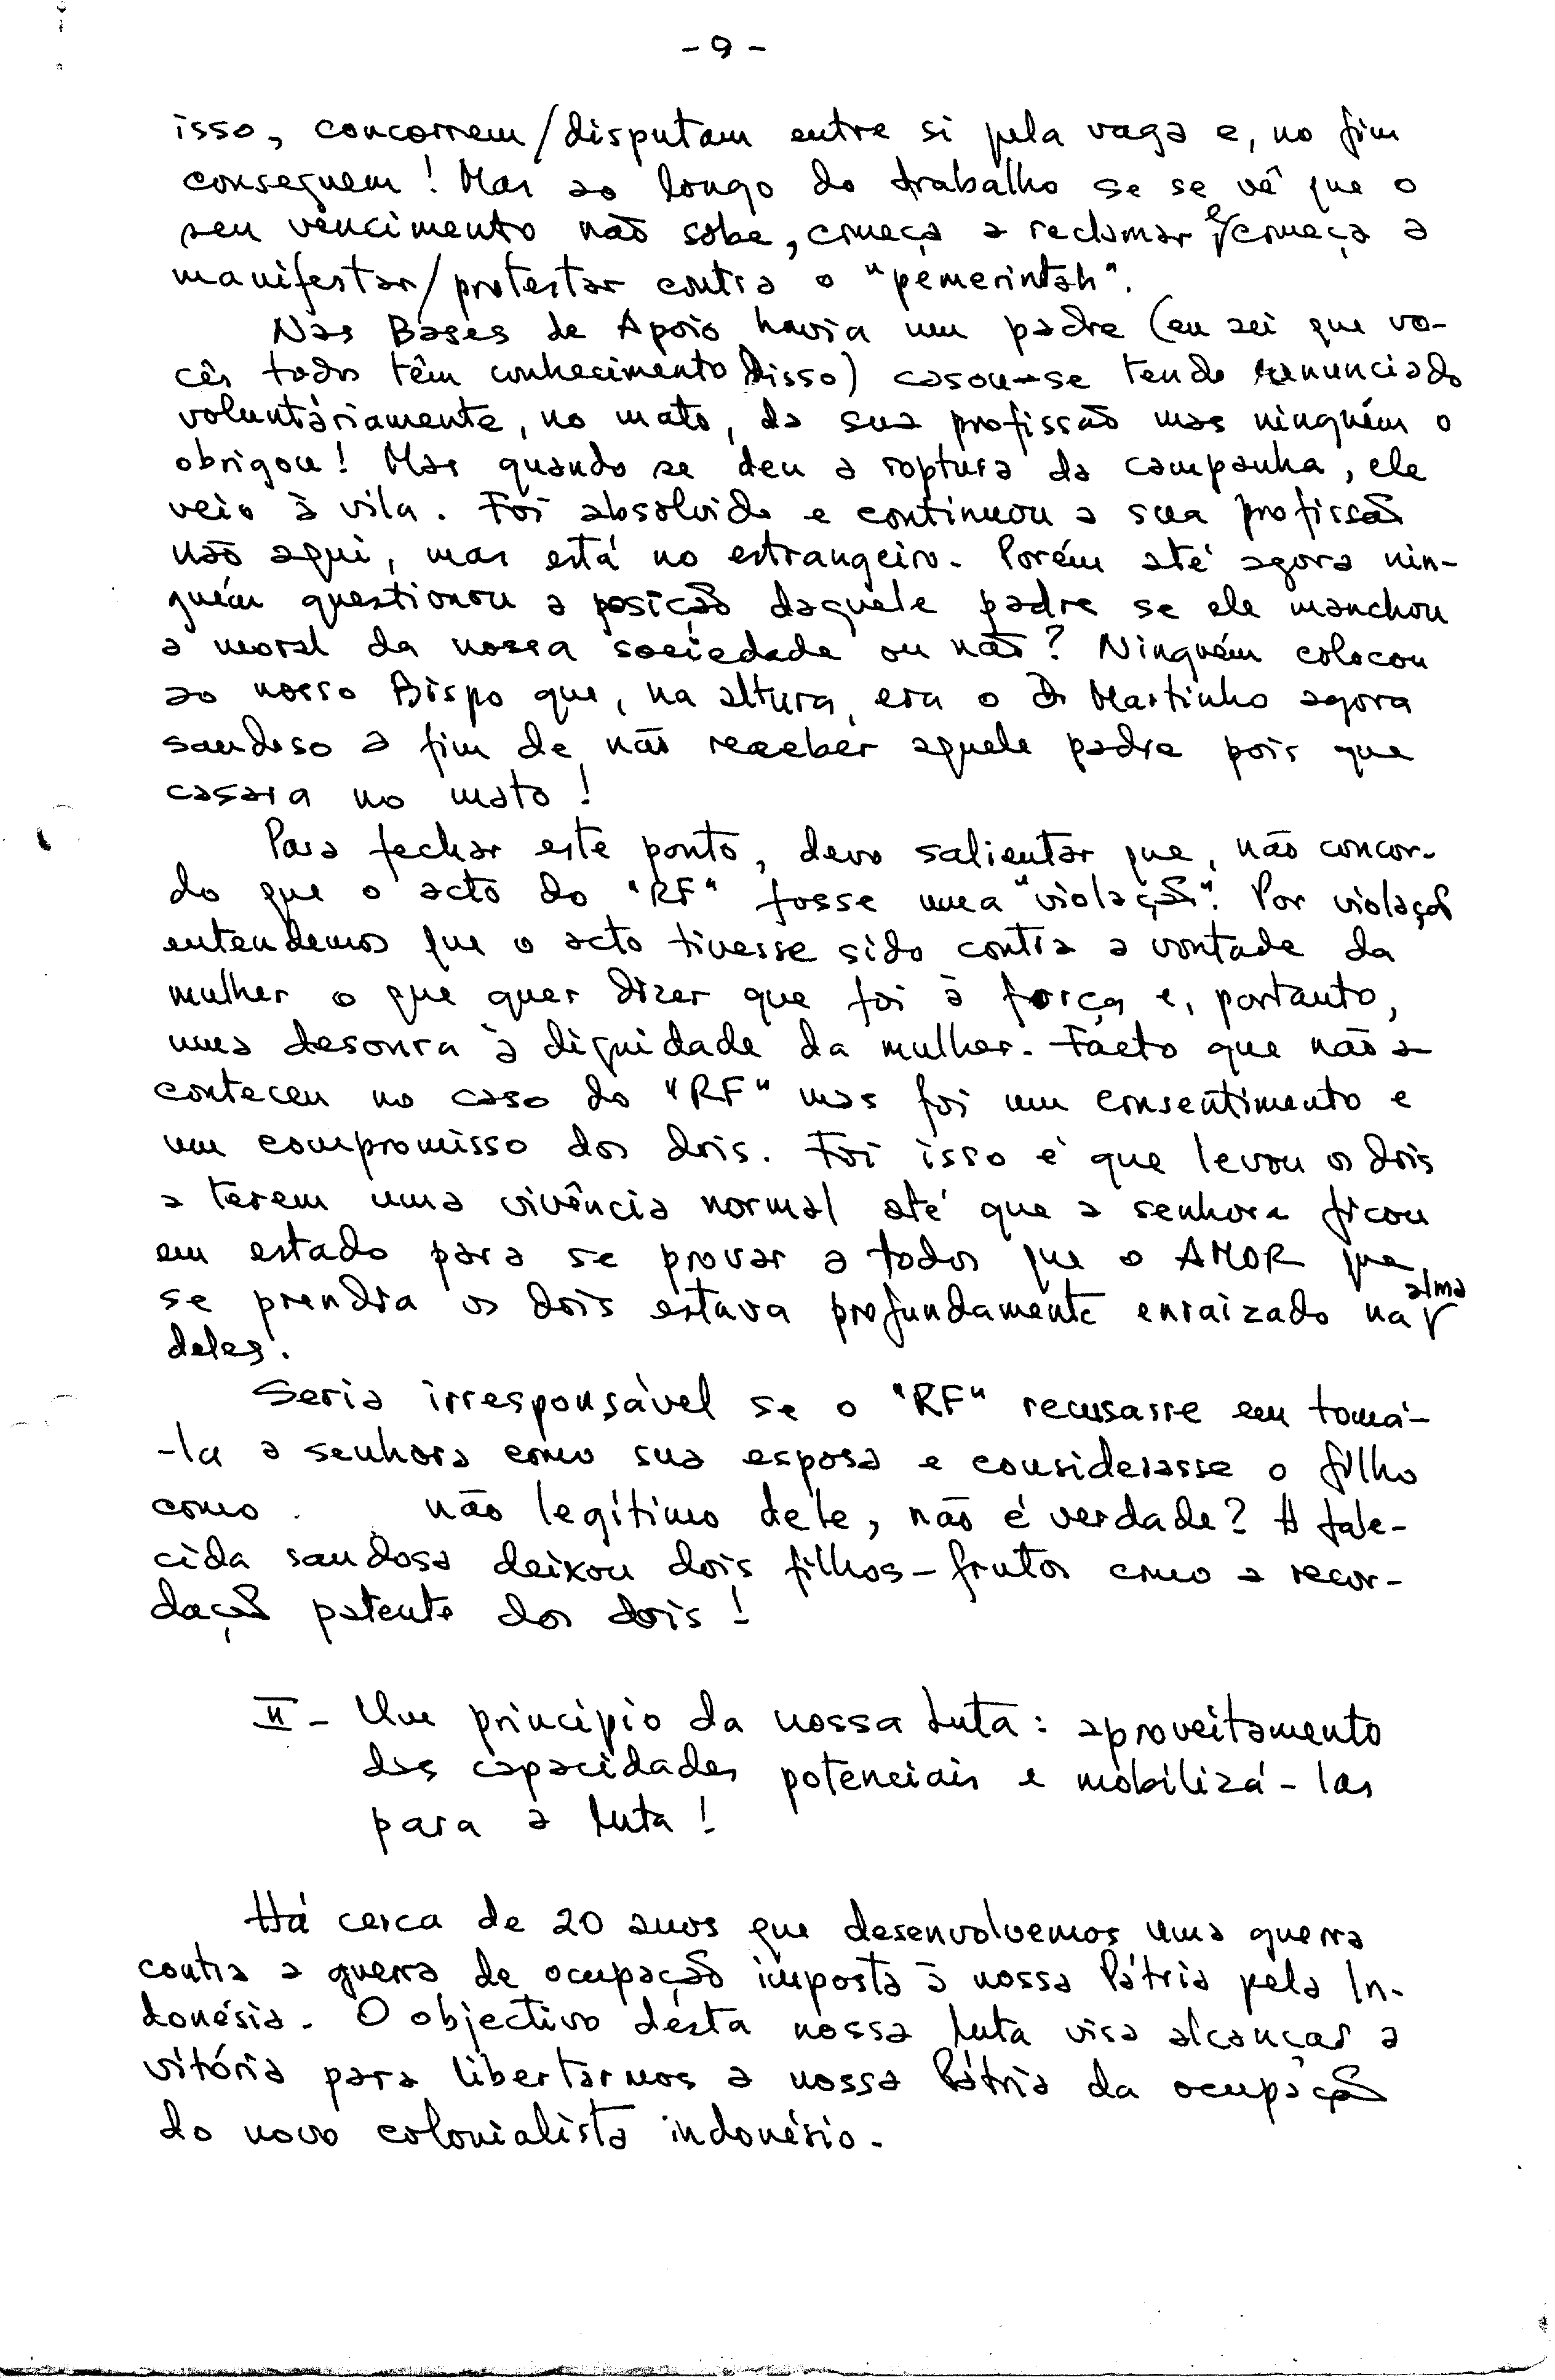 - 9 -
isso, concorrem/disputam entre si pela vaga e, no fim
conseguem! Mas ao longo do trabalho se se vê que o
seu vencimento não sobe, começa a reclamar e/começa a
manifestar/protestar contra o "pemerintah".
Nas Bases de Apoio havia um padre (eu sei que vo-
cês todos têm conhecimento disso) casou-se tendo renunciado
voluntáriamente, no mato, da sua profissão mas ninguém o
obrigou! Mas quando se deu a roptura da campanha, ele
veio à vila. Foi absolvido e continuou a sua profissão
não aqui, mas está no estrangeiro. Porém até agora nin-
guém questionou a posição daquele padre se ele manchou
a moral da nossa sociedade ou não? Ninguém colocou
ao nosso Bispo que, na altura, era o D. Martinho agora
saudoso a fim de não receber aquele padre pois que
casara no mato!
Para fechar este ponto, devo salientar que, não concor-
do que o acto do "RF" fosse uma "violação". Por violação
entendemos que o acto tivesse sido contra a vontade da
mulher o que quer dizer que foi à força e, portanto,
uma desonra à dignidade da mulher. Facto que não a-
conteceu no caso do "RF" mas foi um consentimento e
um compromisso dos dois. Foi isso é que levou os dois
a terem uma vivência normal até que a senhora ficou
em estado para se provar a todos que o AMOR que
se prendia os dois estava profundamente enraizado na alma
deles.
Seria irresponsável se o "RF" recusasse em tomá-
-la a senhora como sua esposa e considerasse o filho
como não legítimo dele, não é verdade? A fale-
cida saudosa deixou dois filhos-frutos como a recor-
dação patente dos dois!
II - Um princípio da nossa luta: aproveitamento
das capacidades potenciais e mobilizá-las
para a luta!
Há cerca de 20 anos que desenvolvemos uma guerra
contra a guerra de ocupação imposta à nossa Pátria pela In-
donésia. O objectivo desta nossa luta visa alcançar a
vitória para libertarmos a nossa Pátria da ocupação
do novo colonialista indonésio.